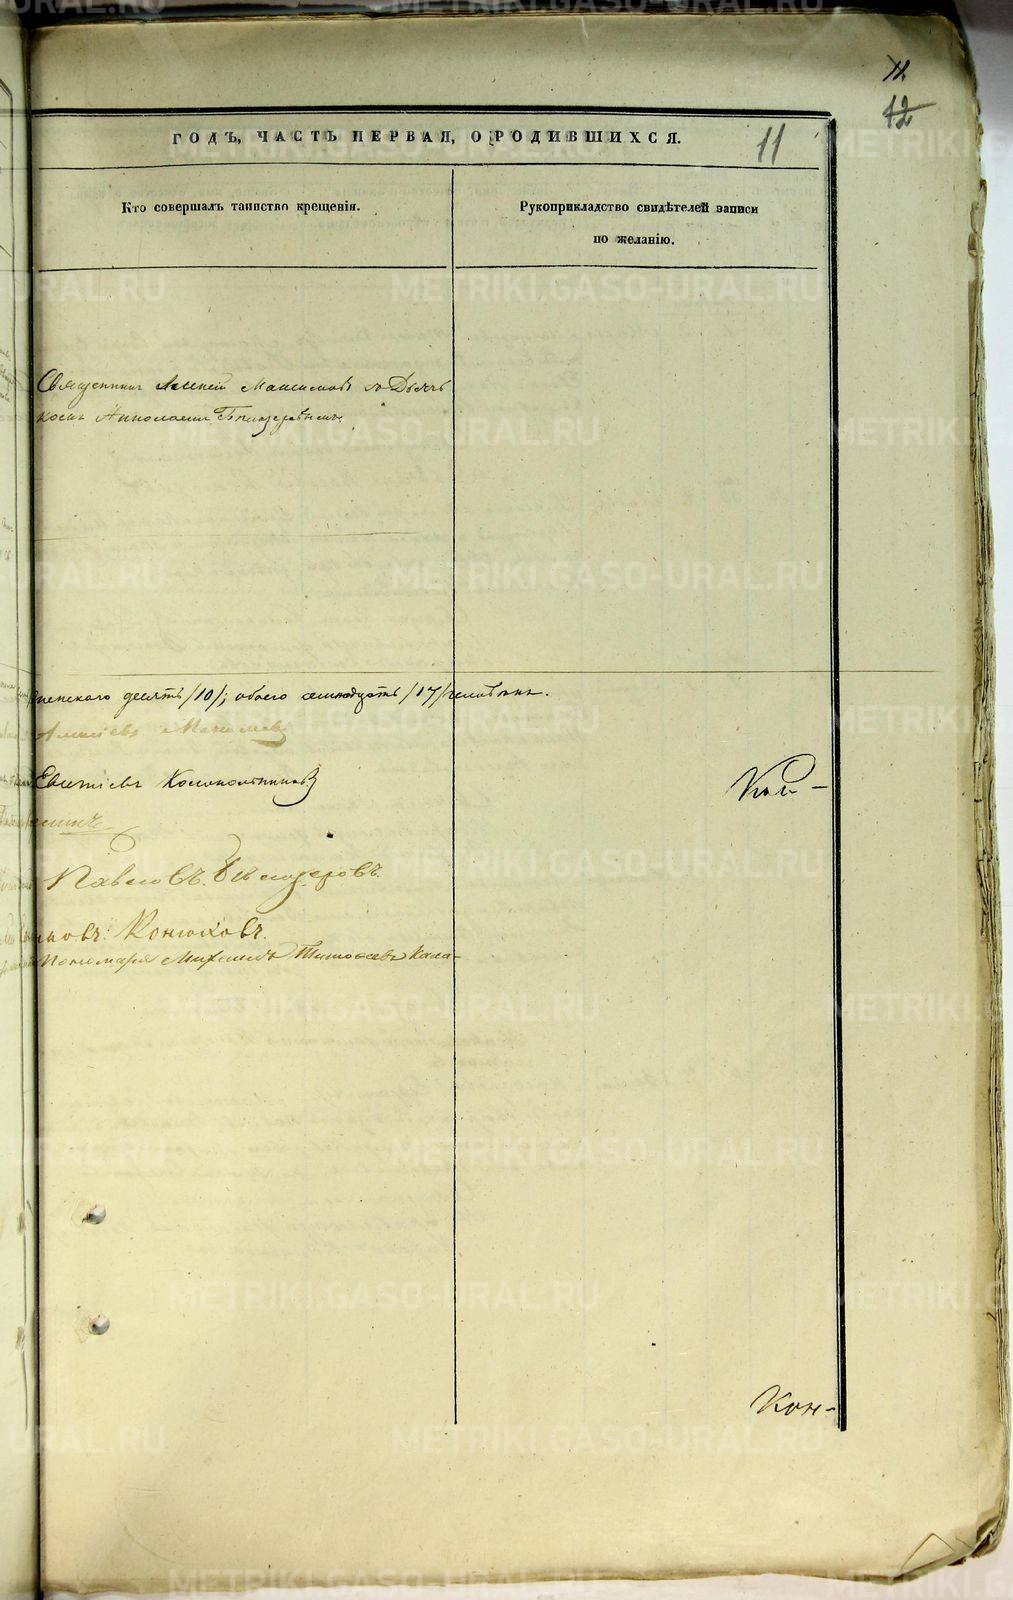 11.
12
11
ГОДЪ, ЧАСТЬ ПЕРВАЯ, О РОДИВШИХСЯ.
Кто совершалъ таинство крещенія.
Рукоприкладство свидѣтелей записи
по желанію.
Священник Алексей Максимовъ съ Дьяч
комъ Николаемъ
женскаго десять /10/; обоего семнадцать /17/ человѣкъ.
Алексѣевъ Максимовъ
Евѳимьевъ
Кол-
Павловъ. Бѣлозеровъ.
новъ. Конюховъ.
Пономарь Михаилъ Тимоѳеевъ Кала-
Кон-
METRIKI.GASO-URAL.RU